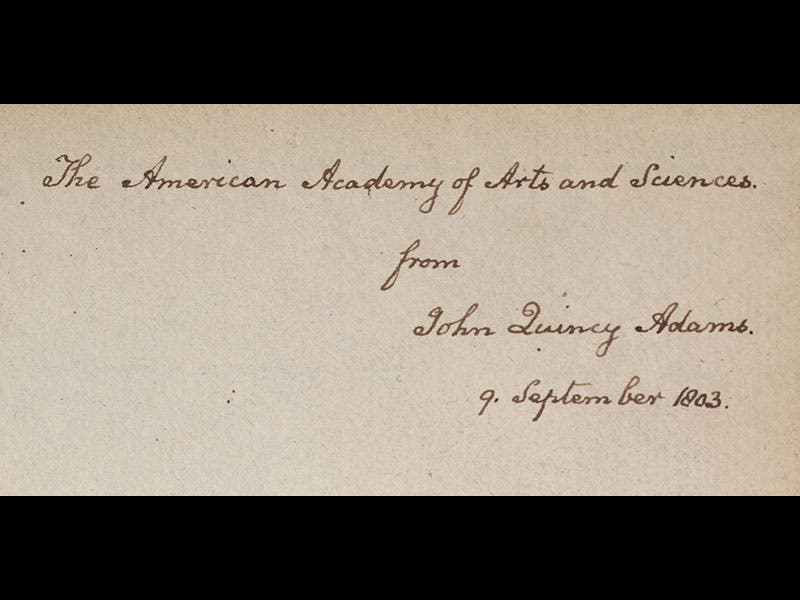 The American Academy of Arts and Sciences.
from
John Quincy Adams.
9. September 1803.